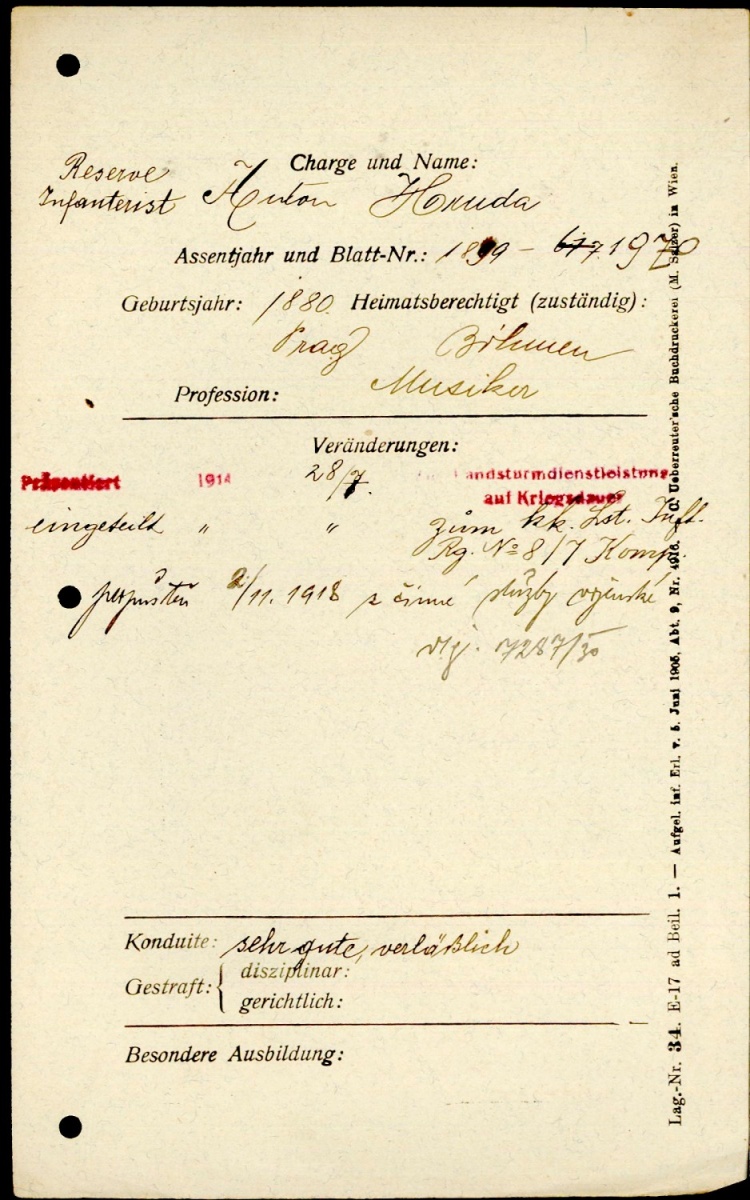 Charge und Name:
Reserve
Infanterist Anton Hruda
Assentjahr und Blatt-Nr.: 1899 – 1970
Geburtsjahr: 1880. Heimatsberechtigt (zuständig):
Prag Böhmen
Profession: Musiker
Veränderungen:
Präsentiert 1914 28/7. Landsturmdienstleistung
auf Kriegsdauer
eingeteilt " " zum kk. Lst. Inft.
Rg. No 8/7 Komp.
propuštěn 2/11. 1918 z činné služby vojenské
7287/30
Konduite: sehr gute, verläßlich
Gestraft: { disziplinar:
gerichtlich:
Besondere Ausbildung:
Lag.-Nr. 34. E-17 ad Beil. 1. — Aufgel. inf. Erl. v. 5. Juni 1905, Abt. 9, Nr. 4916. C. Ueberreuter'sche Buchdruckerei (M. Salzer) in Wien.